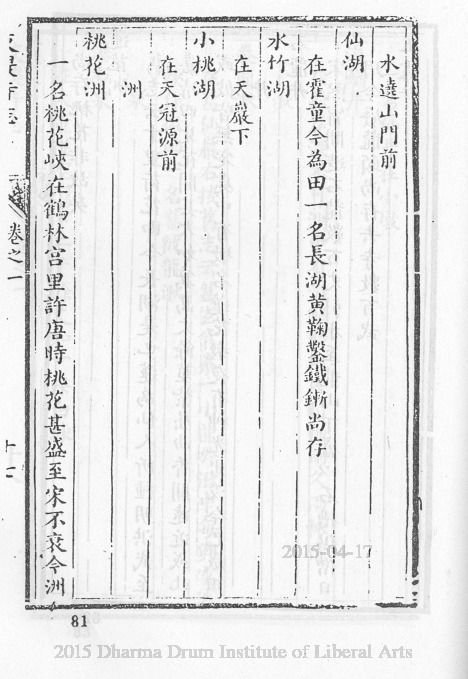 水遶山門前
仙湖
在霍童今為田一名長湖黄鞠鑿鐵鍘尚存
水竹湖
在天巖下
小桃湖
在天冠源前
洲
桃花洲
一名桃花峽在鶴林宫里許唐時桃花甚盛至宋不衰今洲
卷之一
十七
81
2015-04-17
2015 Dharma Drum Institute of Liberal Arts